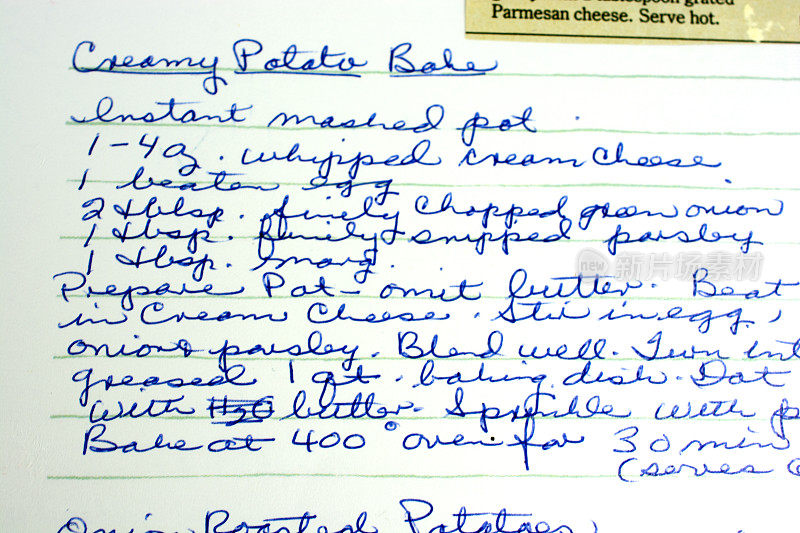 Parmesan cheese. Serve hot.
Creamy Potato Bake
Instant mashed pot.
1-4 oz. whipped cream cheese
1 beaten egg
2 tblsp. finely chopped green onion
1 tbsp. finely snipped parsley
1 tbsp. marg.
Prepare Pot - omit butter. Beat
in Cream Cheese. Stir in egg,
onion & parsley. Blend well. Turn int
greased 1 qt. baking dish. Dot
with H2O butter. Sprinkle with p
Bake at 400° oven for 30 min
(serves
Onion Roasted Potatoes